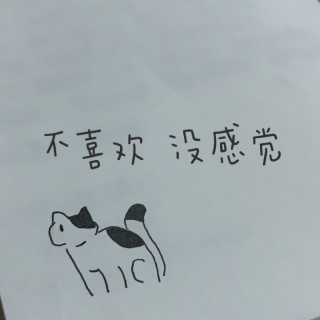 不喜欢 没感觉